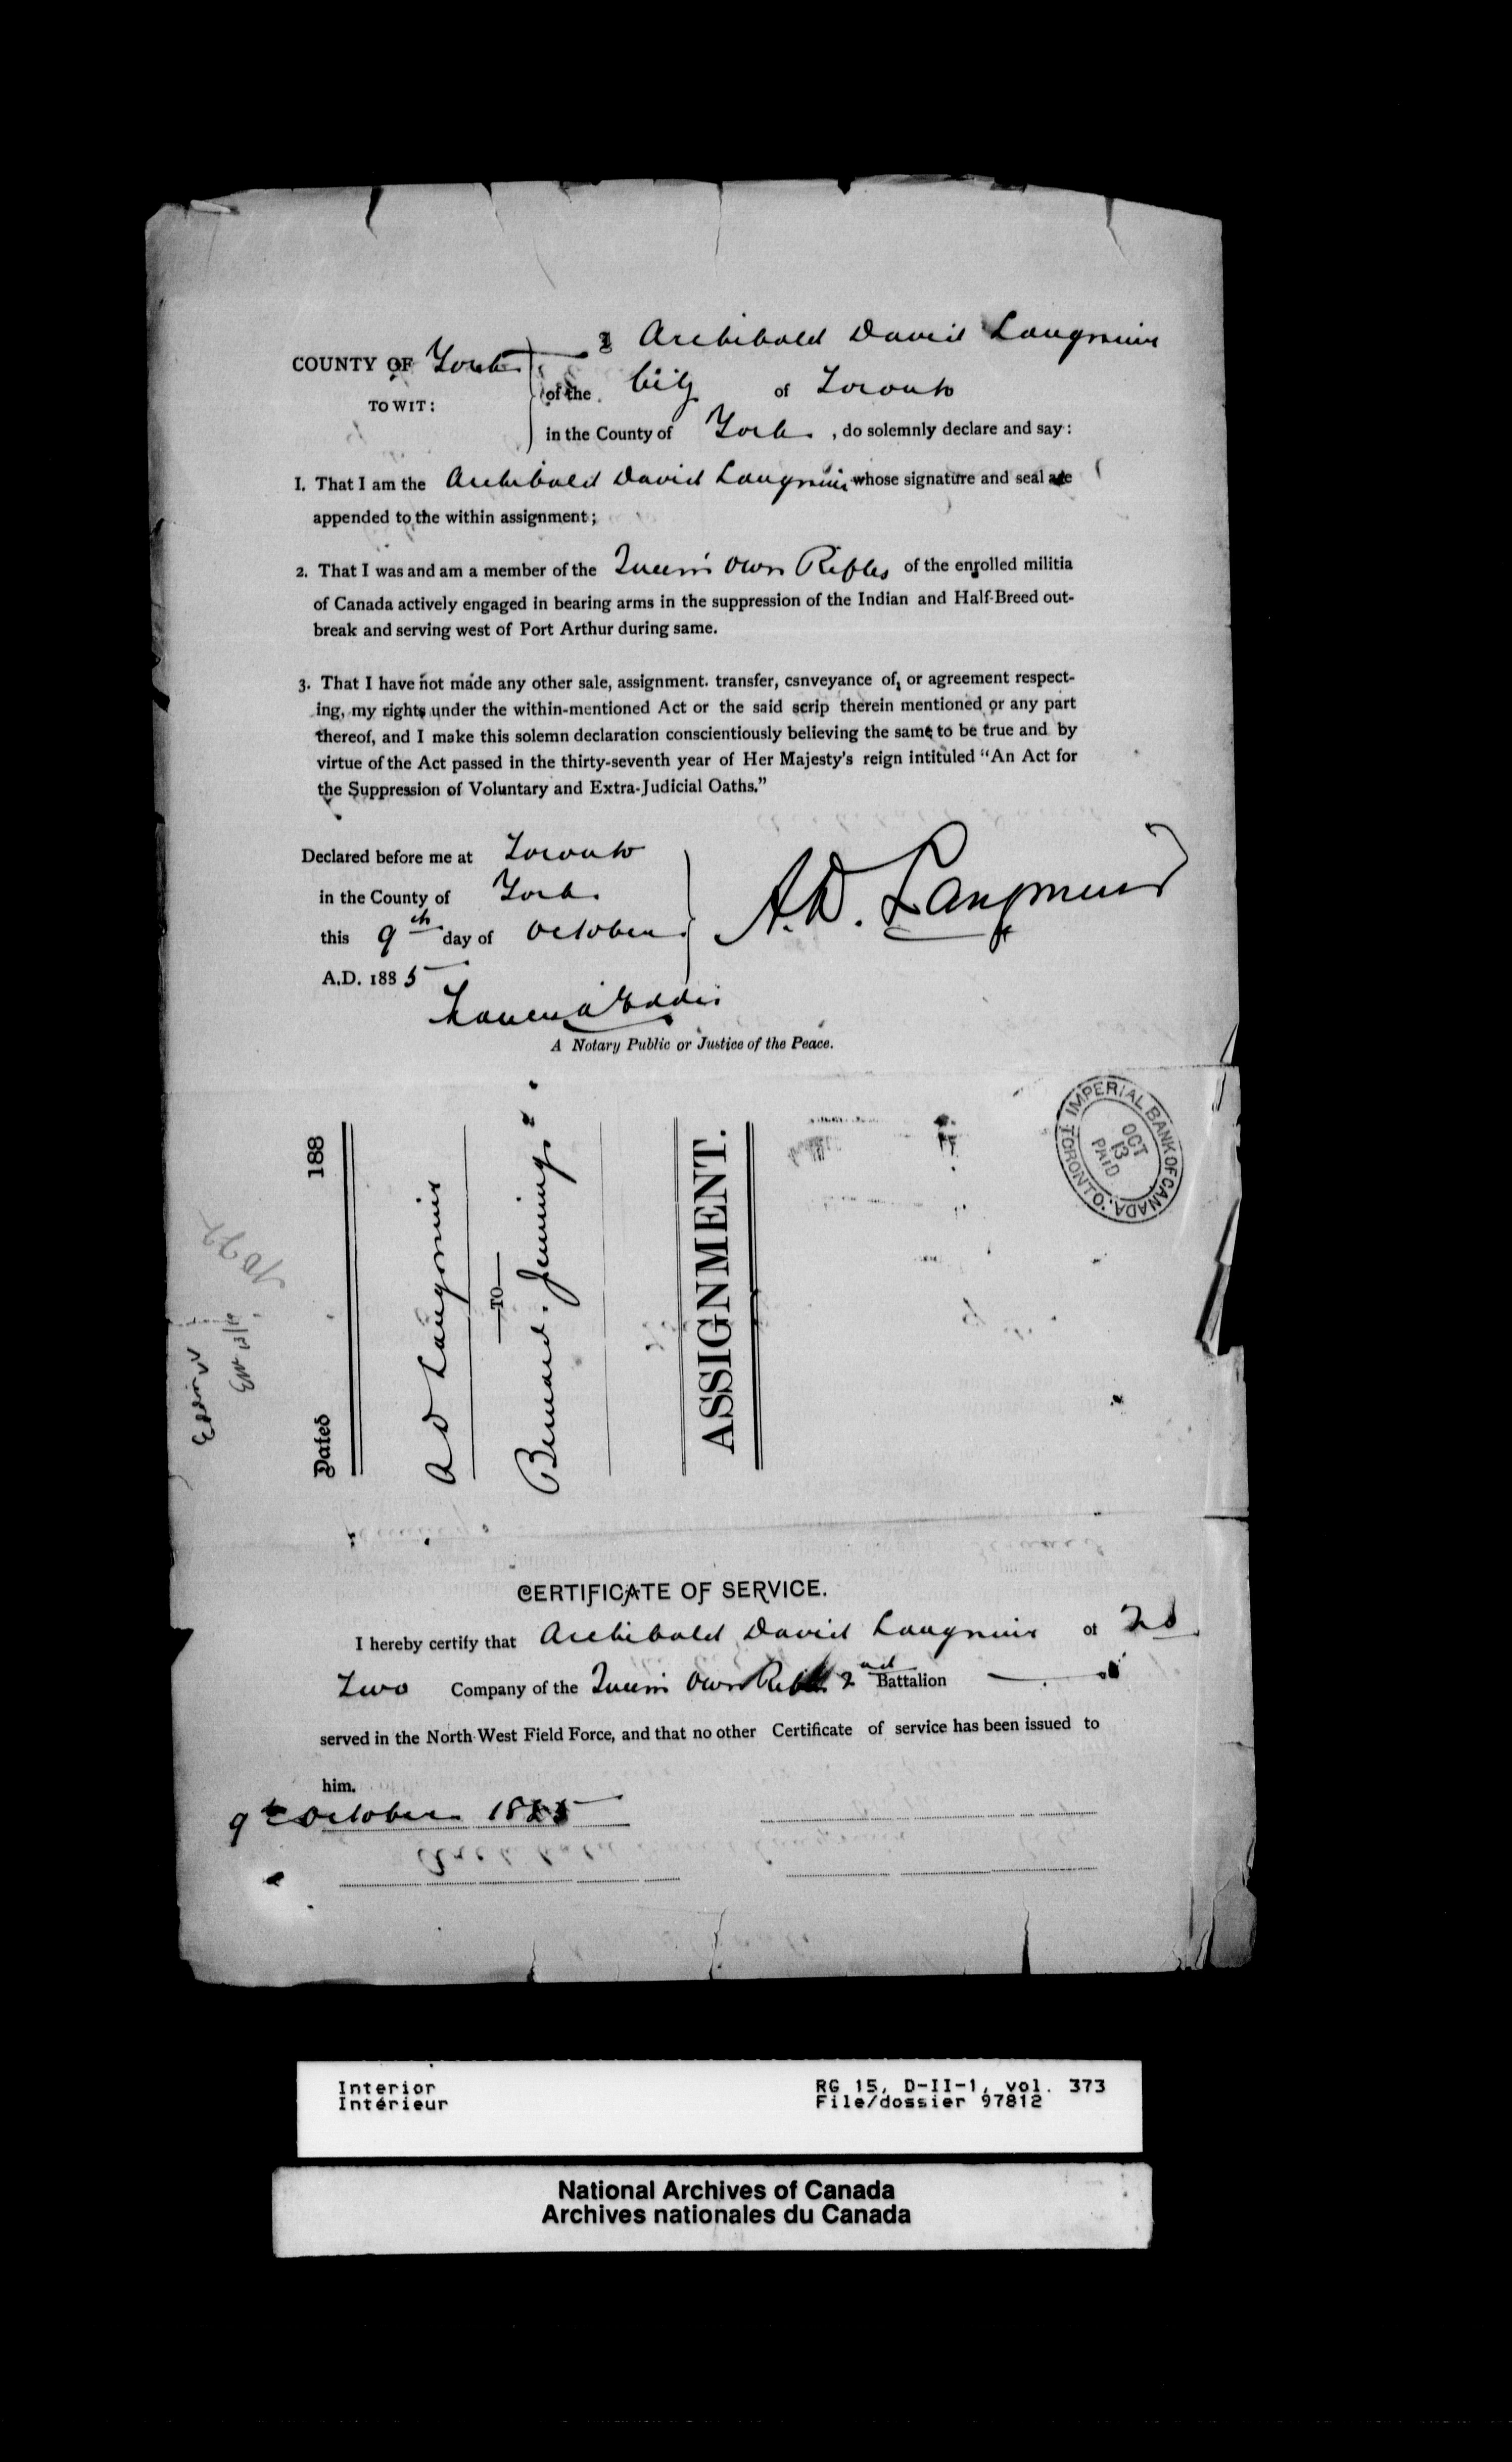 COUNTY OF York
TO WIT:
I Archibald David Langmuir
of the City of Toronto
in the County of York, do solemnly declare and say:
1. That I am the Archibald David Langmuir whose signature and seal are
appended to the within assignment;
2. That I was and am a member of the Queen's Own Rifles of the enrolled militia
of Canada actively engaged in bearing arms in the suppression of the Indian and Half-Breed out-
break and serving west of Port Arthur during same.
3. That I have not made any other sale, assignment. transfer, csnveyance of, or agreement respect-
ing, my rights under the within-mentioned Act or the said scrip therein mentioned or any part
thereof, and I make this solemn declaration conscientiously believing the same to be true and by
virtue of the Act passed in the thirty-seventh year of Her Majesty's reign intituled "An Act for
the Suppression of Voluntary and Extra-Judicial Oaths."
Declared before me at Toronto
in the County of York
this 9th day of October
A.D. 1885
A.D. Langmuir
Eddis
A Notary Public or Justice of the Peace.
IMPERIAL BANK OF CANADA
TORONTO
OCT
13
PAID
Dated 188
A D Langmuir
—TO—
Bernard Jennings
ASSIGNMENT.
CERTIFICATE OF SERVICE.
I hereby certify that Archibald David Langmuir of No
Two Company of the Queen's Own Rifles 2nd Battalion
served in the North-West Field Force, and that no other Certificate of service has been issued to
him.
9th October 1885
Interior
Intérieur
RG 15, D-II-1, vol. 373
File/dossier 97812
National Archives of Canada
Archives nationales du Canada